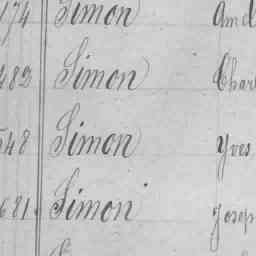 174 Simon Amé
482 Simon Char
548 Simon Yves
681 Simon Josep